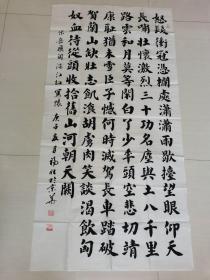 怒髮衝冠憑欄處瀟瀟雨歇擡望眼仰天
長嘯壯懷激烈三十功名塵與土八千里
路雲和月莫等閑白了少年頭空悲切靖
康耻猶未雪臣子憾何時滅駕長車踏破
賀蘭山缺壯志飢飡胡虜肉笑談渴飲匈
奴血待從頭收拾舊山河朝天闕
宋岳飛詞滿江紅寫懷 庚子